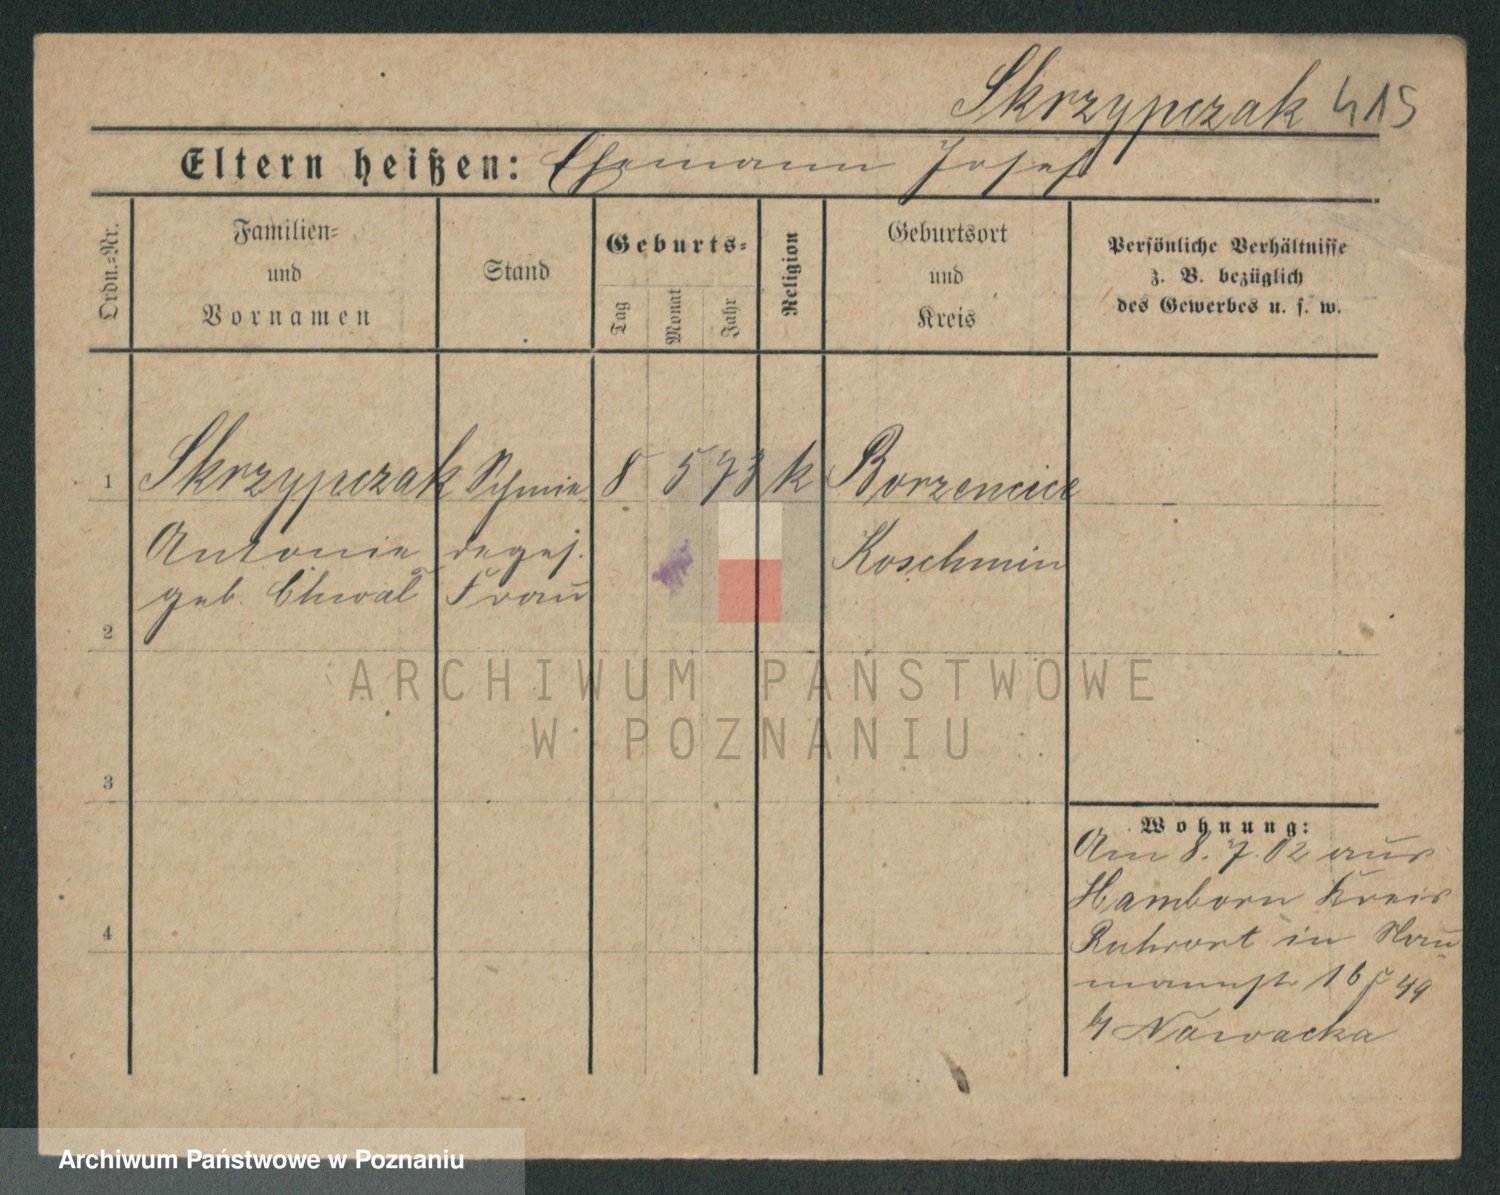 Skrzypczak 415
Eltern heißen: Ehemann Josef
Ordn.-Nr.
Familien-
und
Vornamen
Stand
Geburts-
Tag
Monat
Jahr
Religion
Geburtsort
und
Kreis
Persönliche Verhältnisse
z. B. bezüglich
des Gewerbes u. s. w.
1 Skrzypczak Schmie 8 5 73 k Borzencice
Antonie deges. Koschmin
geb. Chwal Frau
2
ARCHIWUM PAŃSTWOWE
W POZNANIU
3
Wohnung:
Am 8. 7. 02 aus
Hamborn Kreis
4
Ruhrort in Nau
mannstr 16
Nawacka
Archiwum Państwowe w Poznaniu